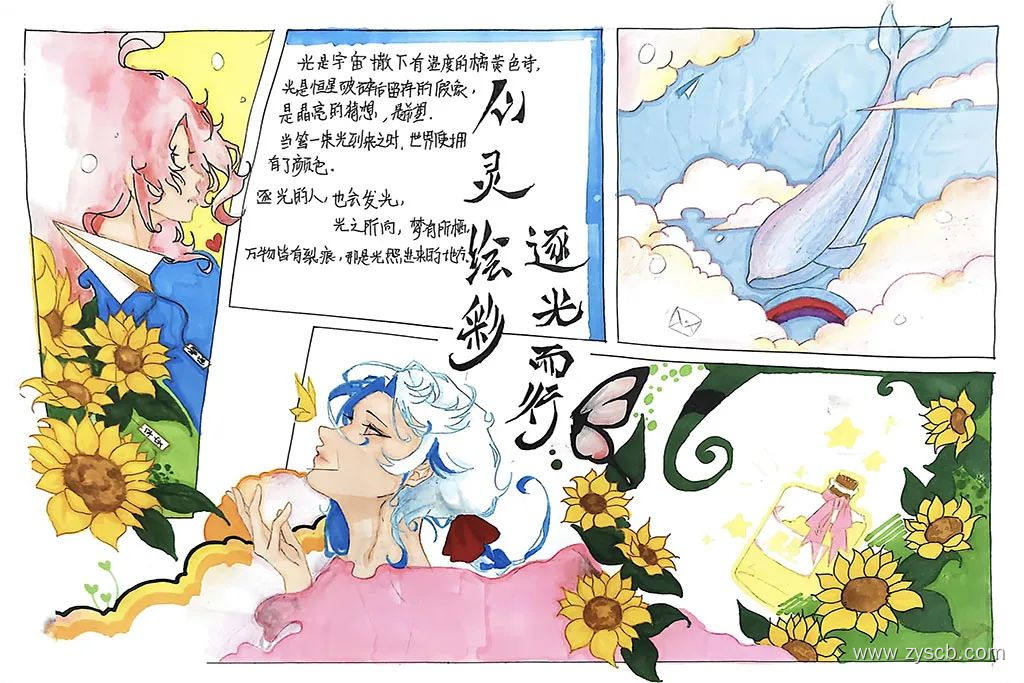 光是宇宙撒下有温度的橘黄色诗,
光是恒星破碎后留存的假象,
是晶亮的猜想,是希望.
当第一束光到来之时,世界便拥
有了颜色.
逐光的人,也会发光,
光之所向,梦有所栖
万物皆有裂痕,那是光照进来的地方.
以灵绘彩
逐光而行
www.zyscb.com